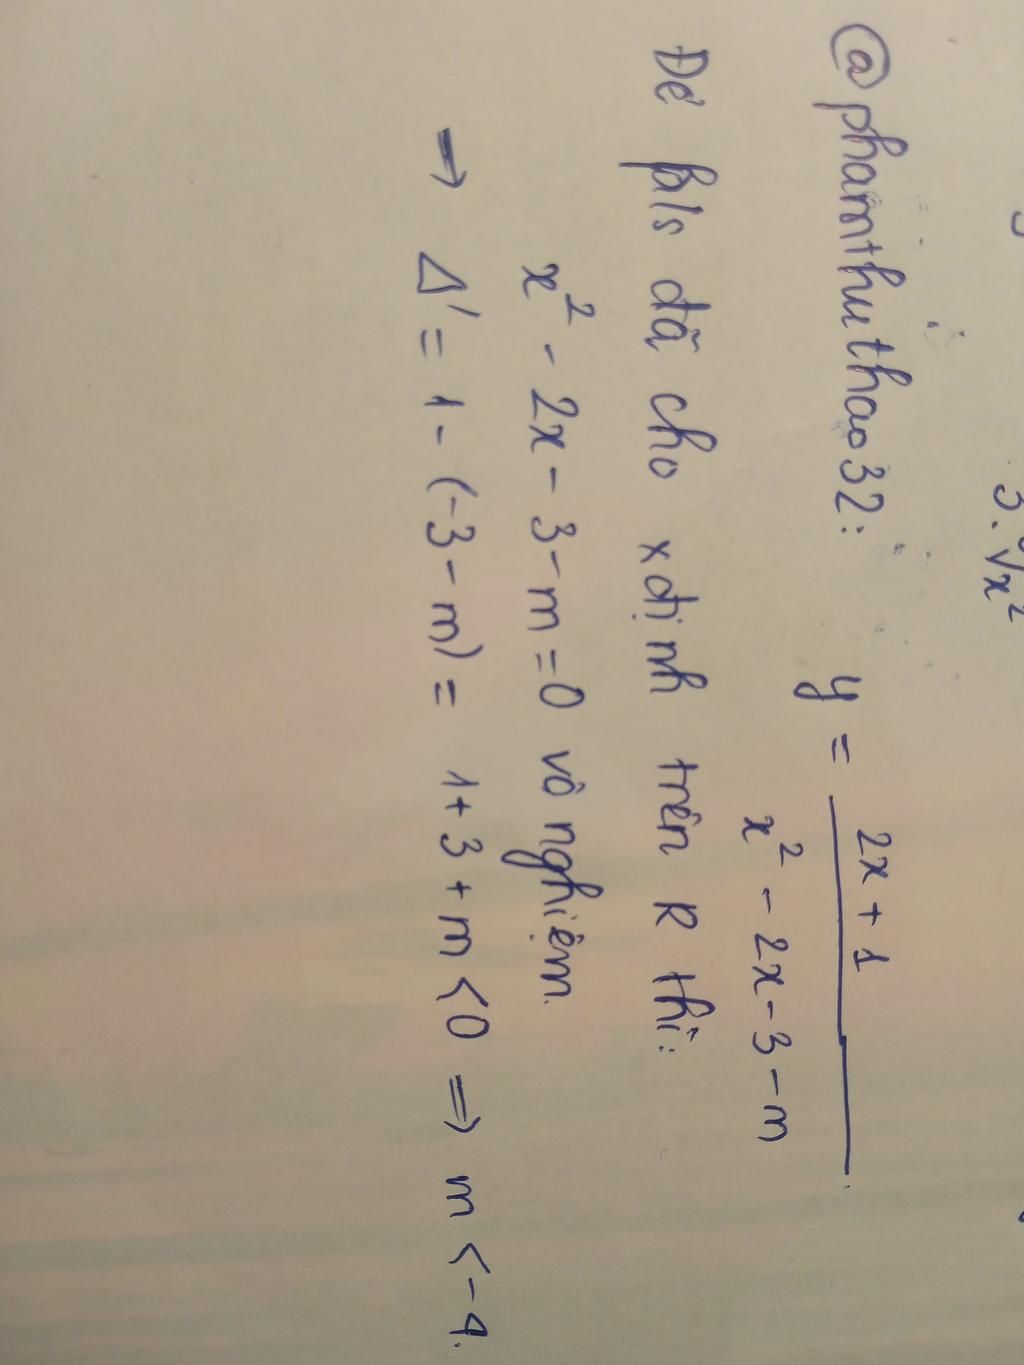 3.√x²
@phamthuthao32: y = \frac{2x + 1}{x² - 2x - 3 - m}
Để hàm số đã cho xđịnh trên R thì:
x² - 2x - 3 - m = 0 vô nghiệm.
⇒ Δ' = 1 - (-3 - m) = 1 + 3 + m < 0 ⇒ m < -4.